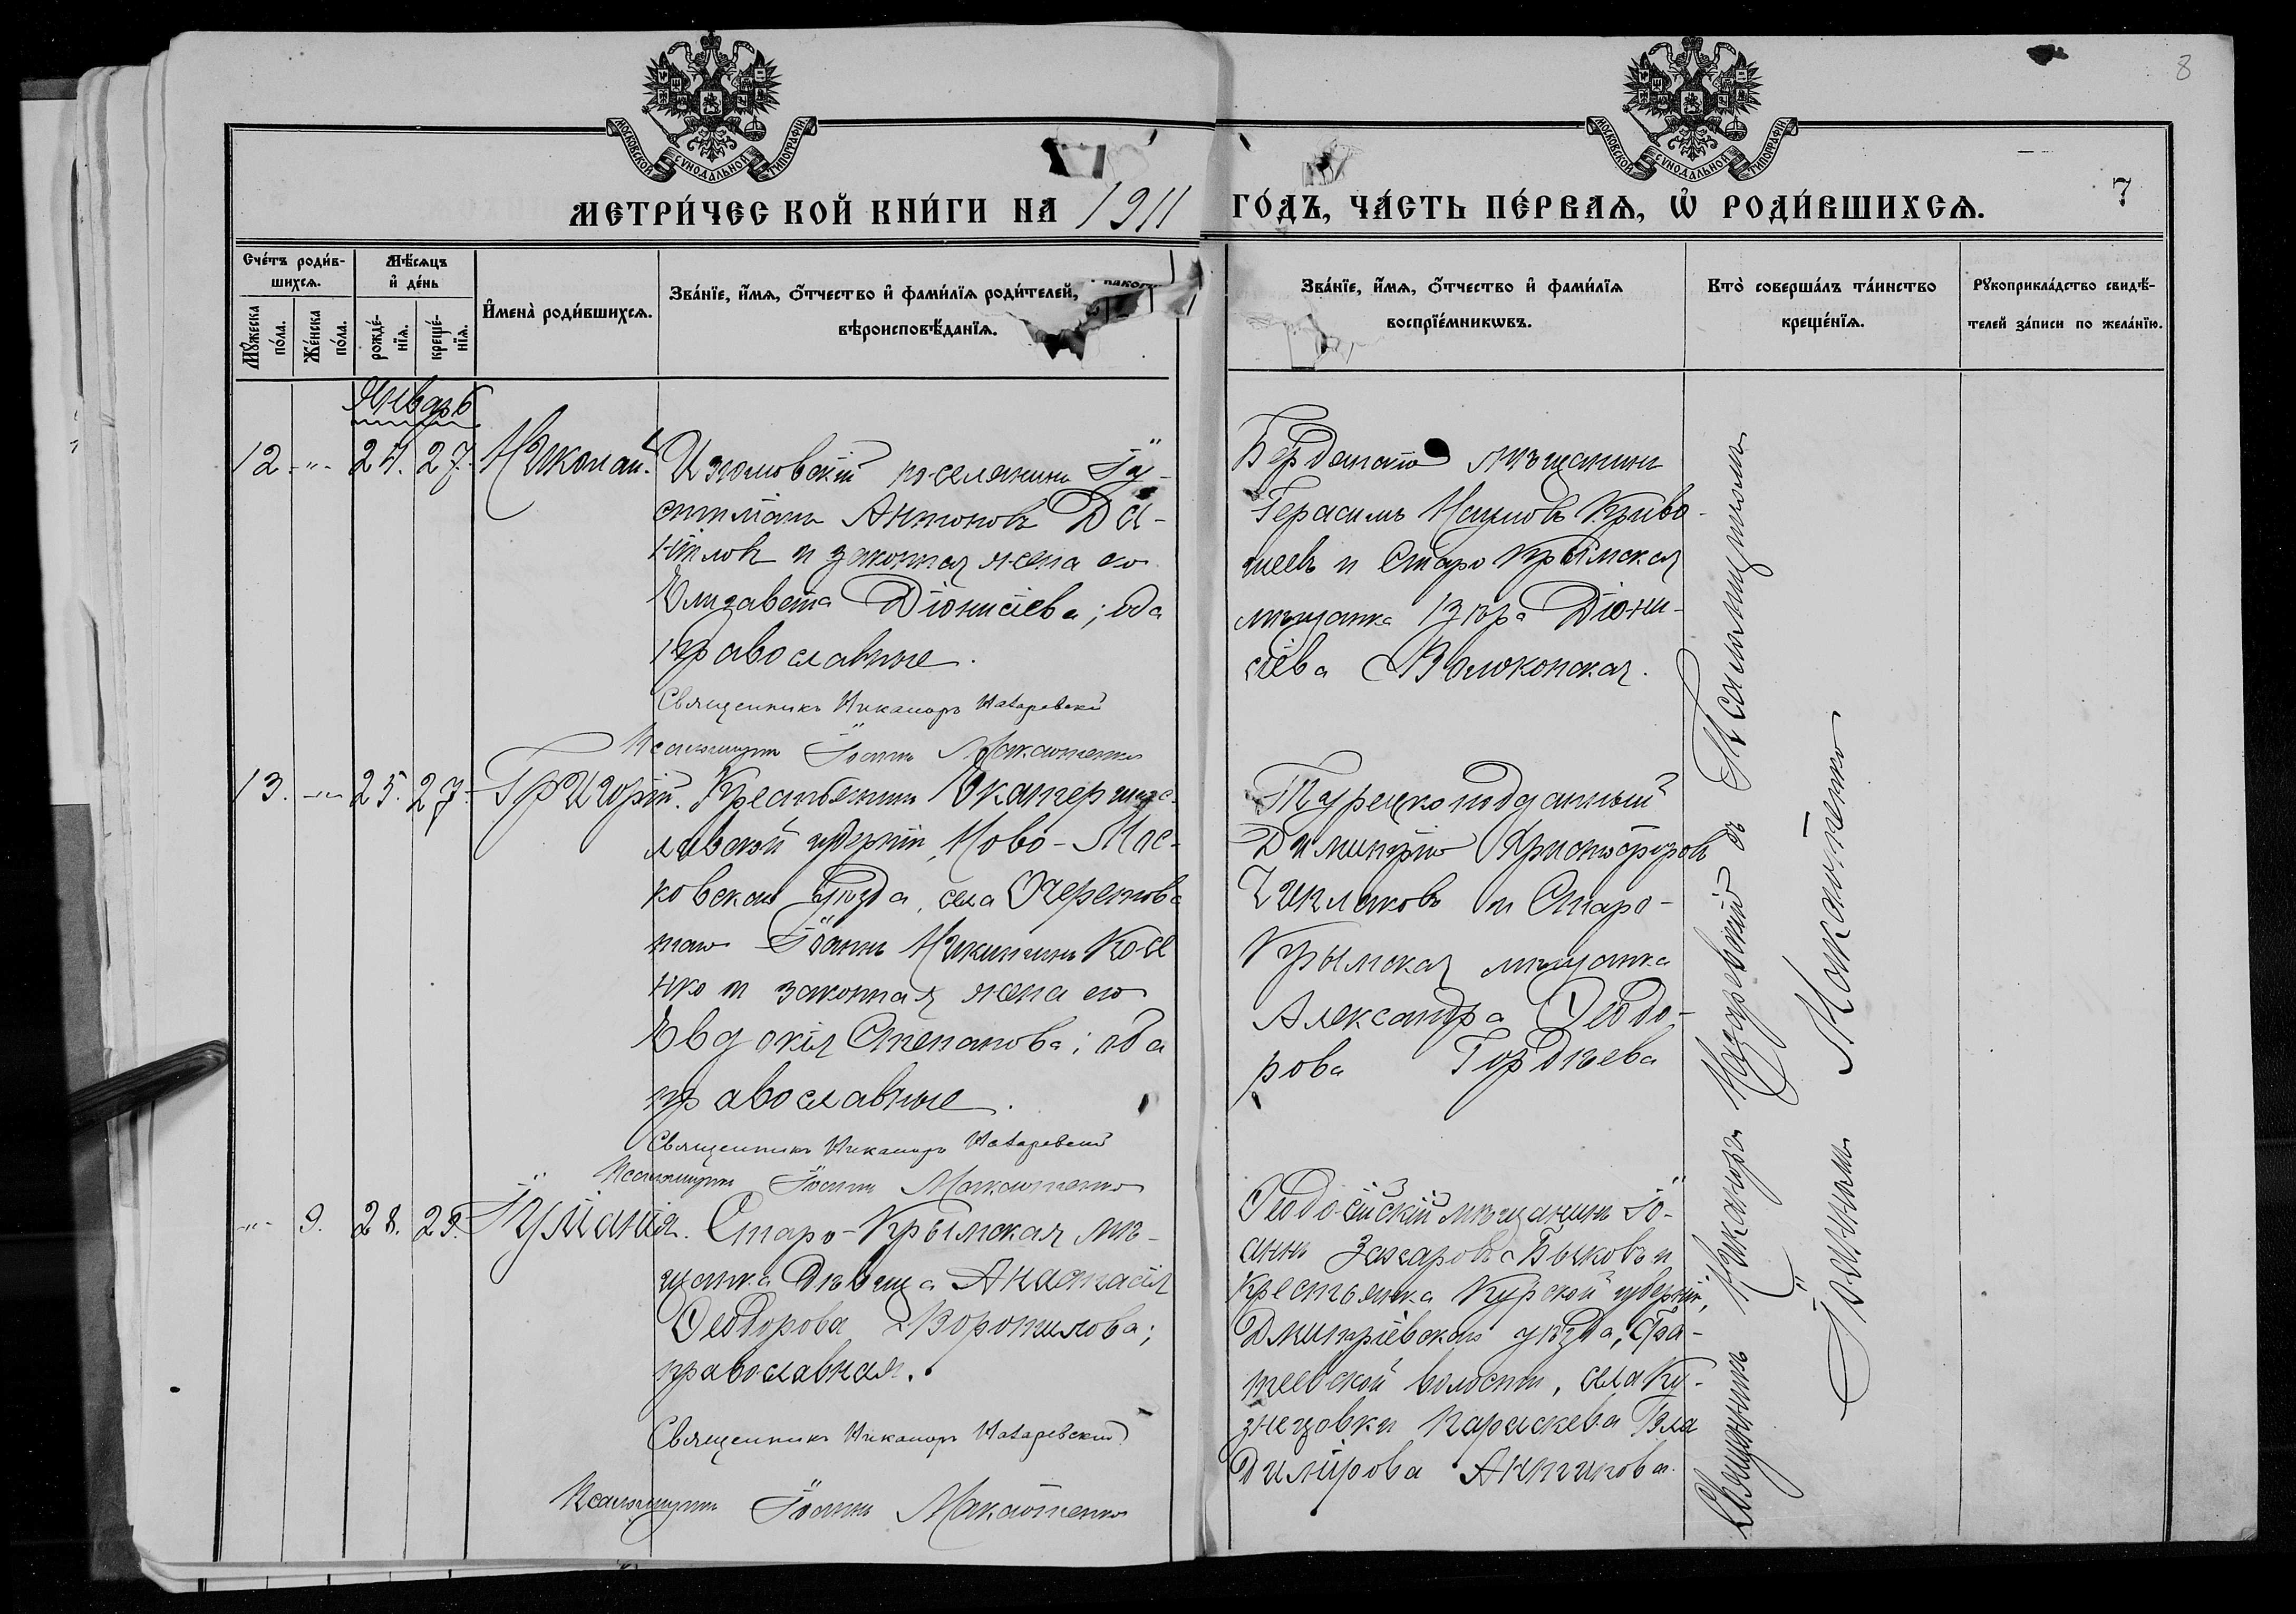 8
МОСКОВСКОЙ СѴНОДАЛЬНОЙ ТИПОГРАФІИ
МОСКОВСКОЙ СѴНОДАЛЬНОЙ ТИПОГРАФІИ
МЕТРИ́ЧЕСКОЙ КНИ́ГИ НА 1911 ГО́ДЪ, ЧА́СТЬ ПЕ́РВАѦ, Ѡ҆ РОДИ́ВШИХСѦ.
7
Сче́тъ роди́в-
шихсѧ.
Мꙋ́жеска по́ла.
Же́нска по́ла.
Мѣ́сѧцъ
и҆ де́нь
рожде́-
нїѧ.
креще́-
нїѧ.
И҆мена̀ роди́вшихсѧ.
Зва́нїе, и҆́мѧ, ѻ҆́тчество и҆ фами́лїѧ роди́телей,
вѣроисповѣ́данїѧ.
Зва́нїе, и҆́мѧ, ѻ҆́тчество и҆ фами́лїѧ
воспрїе́мникѡвъ.
Кто̀ соверша́лъ та́инство
креще́нїѧ.
Рꙋкоприкла́дство свидѣ́-
телей за́писи по жела́нїю.
Январь
12. -"- 27. Николай. Изюмовскій поселянинъ Іу-
стиніанъ Антоновъ Да-
ниловъ и законная жена его
Елизавета Діонисіева; оба
православные.
Священникъ Никаноръ Назаревскій
Псаломщикъ Іоаннъ Макаютенко
Мѣщанинъ
Герасимъ Наумовъ Криво-
шеевъ и Старо Крымская
мѣщанка Діони-
сіева
13. -"- 25. 27. Григорій. Крестьянинъ Екатерино-
славской губерніи, Ново-Мос-
ковскаго уѣзда, села
Іоаннъ Никитинъ
и законная жена его
Евдокія Степанова; оба
православные.
Священникъ Никаноръ Назаревскій
Псаломщикъ Іоаннъ Макаютенко
Турецкоподданный
Димитрій Христофоровъ
и Старо-
Крымская мѣщанка
Александра Ѳеодо-
рова Гордѣева
-"- 9. 28. 29. Іуліанія. Старо-Крымская мѣ-
щанка дѣвица Анастасія
Ѳеодорова Воропилова;
православная.
Священникъ Никаноръ Назаревскій
Псаломщикъ Іоаннъ Макаютенко
Ѳеодосійскій мѣщанинъ Іо-
аннъ Захаровъ Бычковъ и
крестьянка Курской губерніи,
Дмитріевскаго уѣзда, Фа-
теевской волости, села Ку-
знецовки Параскева Вла
димірова Антипова.
Священникъ Никаноръ Назаревскій съ Псаломщикомъ
Іоанномъ Макаютенко